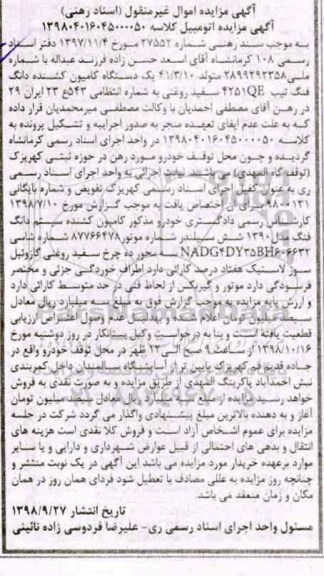 آگهی مزایده اموال غیرمنقول (اسناد رهنی)
آگهی مزایده اتومبیل کلاسه ۱۳۹۸۰۴۰۱۶۰۴۵۰۰۰۰۵۰
به موجب سند رهنی شماره ۲۷۵۵۲ مورخ ۱۳۹۷/۱۱/۴ دفتر اسناد
رسمی ۱۰۸ کرمانشاه آقای اسعد حسن زاده فرزند عبداله با شماره
ملی ۲۸۹۹۲۹۲۳۵۸ متولد ۴۱/۳/۱۰ یک دستگاه کامیون کشنده دانگ
فنگ تیپ ۴۲۵۱QE سفید روغنی به شماره انتظامی ۵۴۳ع۲۳ ایران ۲۹
در رهن آقای مصطفی احمدیان با وکالت مصطفی میرمحمدیان قرار داده
که به علت عدم ایفای تعهد منجر به صدور اجراییه و تشکیل پرونده به
کلاسه ۱۳۹۸۰۴۰۱۶۰۴۵۰۰۰۰۵۰ در واحد اجرای اسناد رسمی کرمانشاه
گردیده و چون محل توقف خودرو مورد رهن در حوزه ثبتی کهریزک
(توقفگاه المهدی) می باشد نیابت اجرائی به واحد اجرای اسناد رسمی
ری به عنوان کفیل اجرای اسناد رسمی کهریزک تفویض و شماره بایگانی
۹۸۰۰۱۳۱ اختصاص یافت به موجب گزارش مورخ ۱۳۹۸/۷/۱۰
کارشناس رسمی دادگستری خودرو مذکور کامیون کشنده سیستم دانگ
فنگ مدل ۱۳۹۰ شش سیلندر شماره موتور ۸۷۷۶۶۴۷۸ شماره شاسی
NADG۴DY۳۵BH۶۰۶۶۳۲ سه محور ده چرخ سفید روغنی گازوئیل
سوز لاستیک هفتاد درصد کارائی دارد اطراف خوردگی جزئی و مختصر
فرسودگی دارد موتور و گیربکس از لحاظ فنی در حد متوسط کارائی دارد
و ارزش پایه مزایده به موجب گزارش فوق به مبلغ سه میلیارد ریال معادل
سیصد میلیون تومان اعلام
قطعیت یافته است و بنا به درخواست وکیل بستانکار در روز دوشنبه مورخ
۱۳۹۸/۱۰/۱۶ از ساعت ۹ صبح الی ۱۲ ظهر در محل توقف خودرو واقع در
جاده قدیم قم کهریزک پایین تر از آسایشگاه سالمندان داخل کمربندی
نبش احمدآباد پارکینگ المهدی از طریق مزایده و به صورت نقدی به فروش
خواهد رسید مزایده از مبلغ سه میلیارد ریال معادل سیصد میلیون تومان
آغاز و به دهنده بالاترین مبلغ پیشنهادی واگذار می گردد شرکت در جلسه
مزایده برای عموم اشخاص آزاد است و فروش کلا نقدی است هزینه های
انتقال و بدهی های احتمالی از قبیل عوارض شهرداری و دارایی و یا سایر
موارد برعهده خریدار مورد مزایده می باشد این آگهی در یک نوبت منتشر و
چنانچه روز مزایده به عللی مصادف با تعطیل شود فردای همان روز در همان
مکان و زمان منعقد می باشد.
تاریخ انتشار ۱۳۹۸/۹/۲۷
مسئول واحد اجرای اسناد رسمی ری- علیرضا فردوسی زاده نائینی